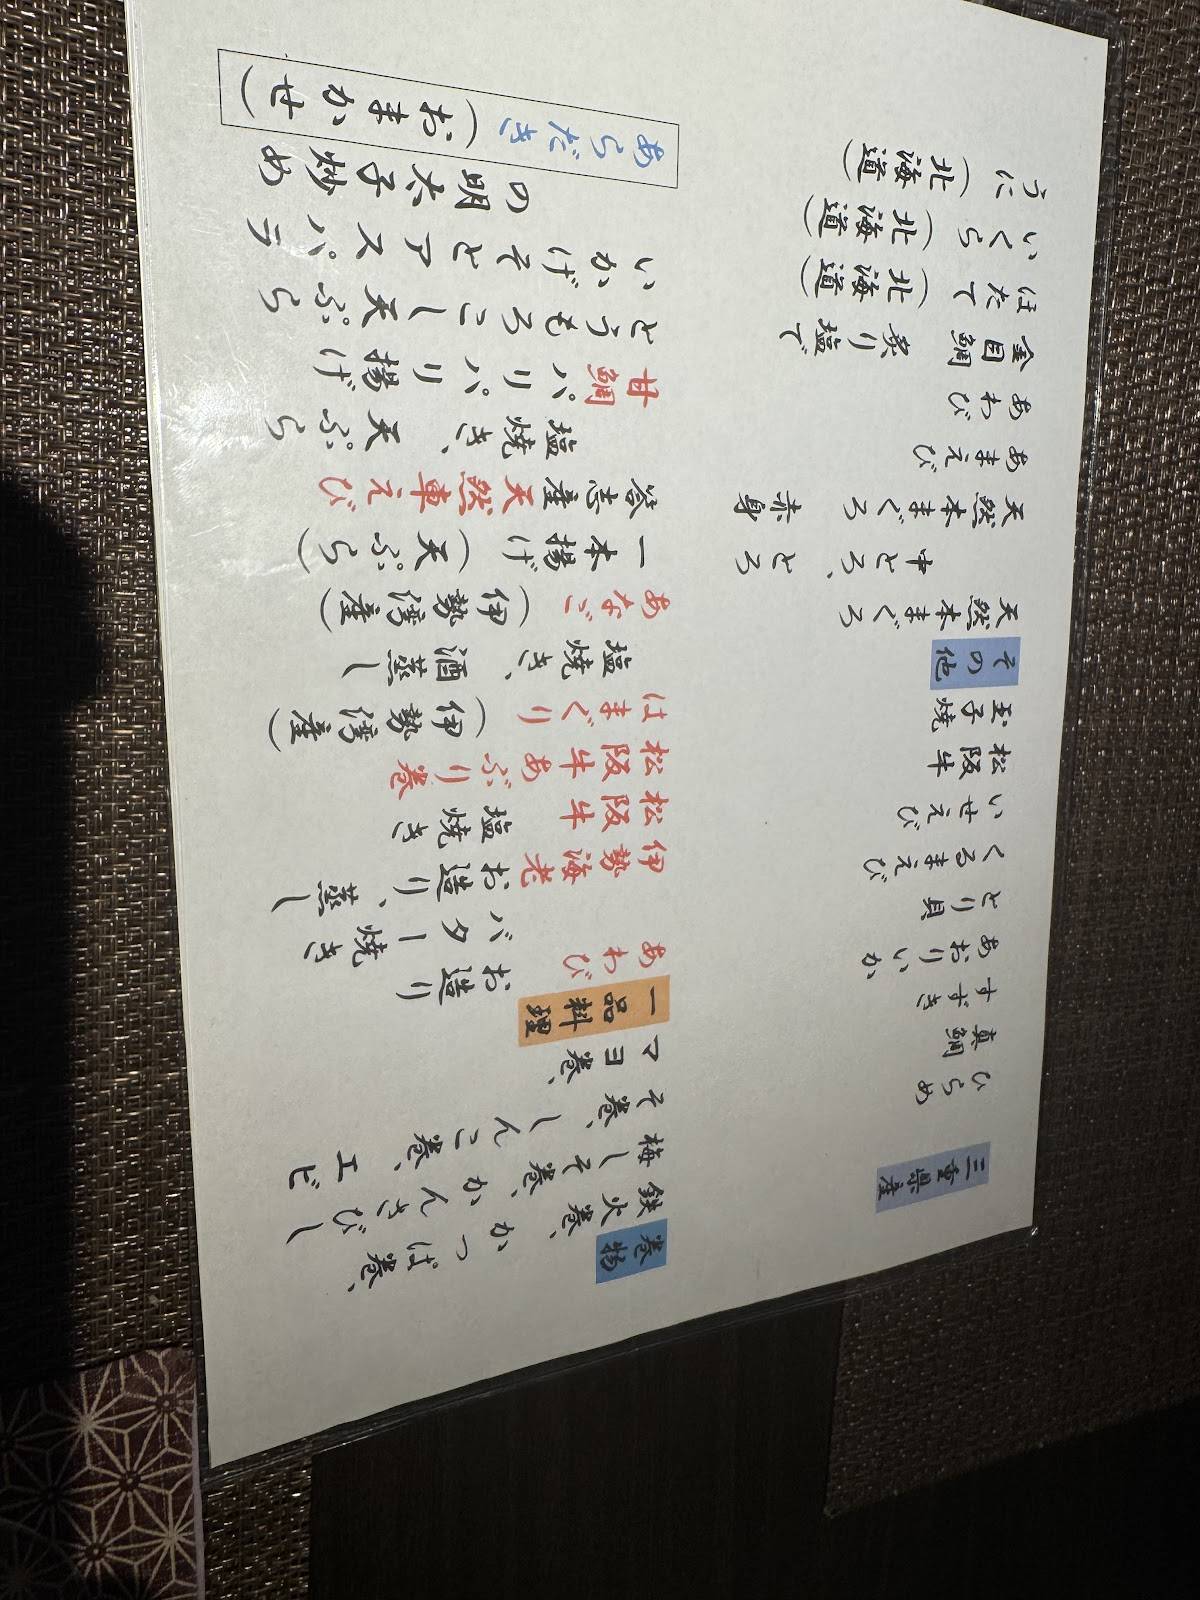 三重県産
ひらめ
真鯛
すずき
あおりいか
とり貝
くるまえび
いせえび
松阪牛
玉子焼
その他
天然本まぐろ
中とろ、とろ
天然本まぐろ 赤身
あまえび
あわび
金目鯛 炙り塩で
ほたて (北海道)
いくら (北海道)
うに (北海道)
巻物
鉄火巻、かっぱ巻、
梅しそ巻、かんさびし
そ巻、しんこ巻、エビ
マヨ巻、
一品料理
あわび お造り
バター焼き
伊勢海老 お造り、蒸し
松阪牛 塩焼き
松阪牛あぶり巻
はまぐり (伊勢湾産)
塩焼き、酒蒸し
あなご (伊勢湾産)
一本揚げ (天ぷら)
答志産天然車えび
塩焼き、天ぷら
甘鯛パリパリ揚げ
とうもろこし天ぷら
いかげそとアスパラ
の明太子炒め
あらだき (おまかせ)